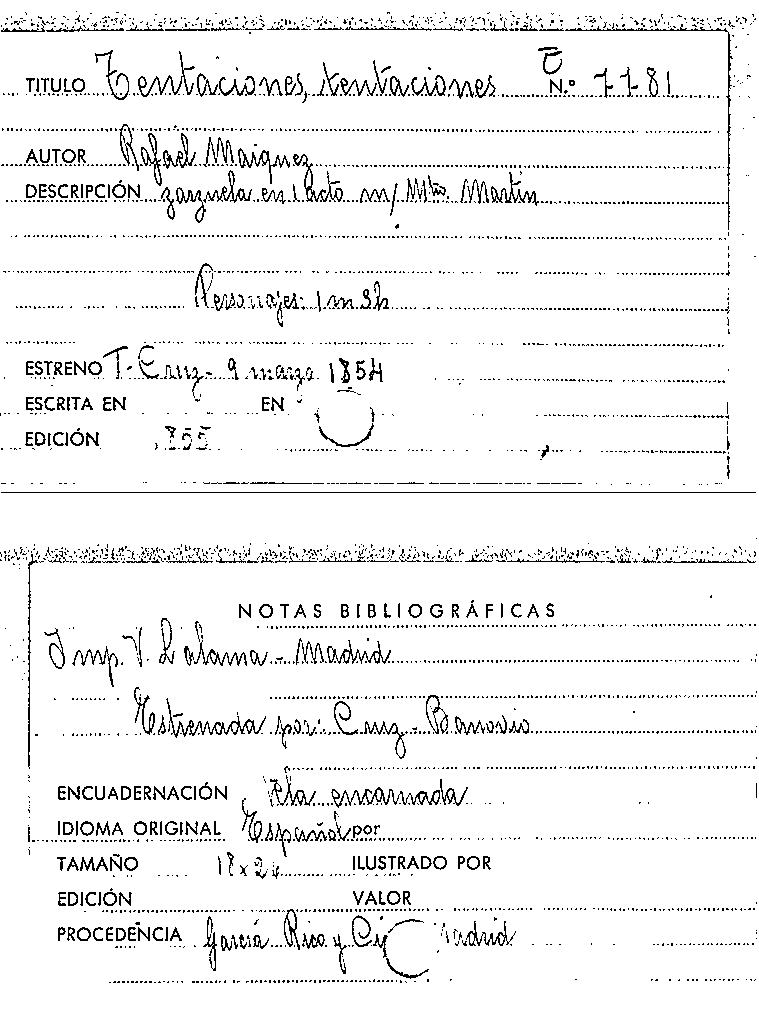 TITULO Tentaciones, tentaciones T N.º 7781
AUTOR Rafael Maiquez
DESCRIPCIÓN zarzuela en 1 acto m/ Mtro. Martin
Personajes: 1 m 3h
ESTRENO T. Cruz - 9 marzo 1854
ESCRITA EN EN
EDICIÓN 1855
NOTAS BIBLIOGRÁFICAS
Imp. V. Lalama - Madrid
Estrenada por: Cruz - Banovio
ENCUADERNACIÓN Tela encarnada
IDIOMA ORIGINAL Español por
TAMAÑO 18x26 ILUSTRADO POR
EDICIÓN VALOR
PROCEDENCIA García Rico y Cía Madrid